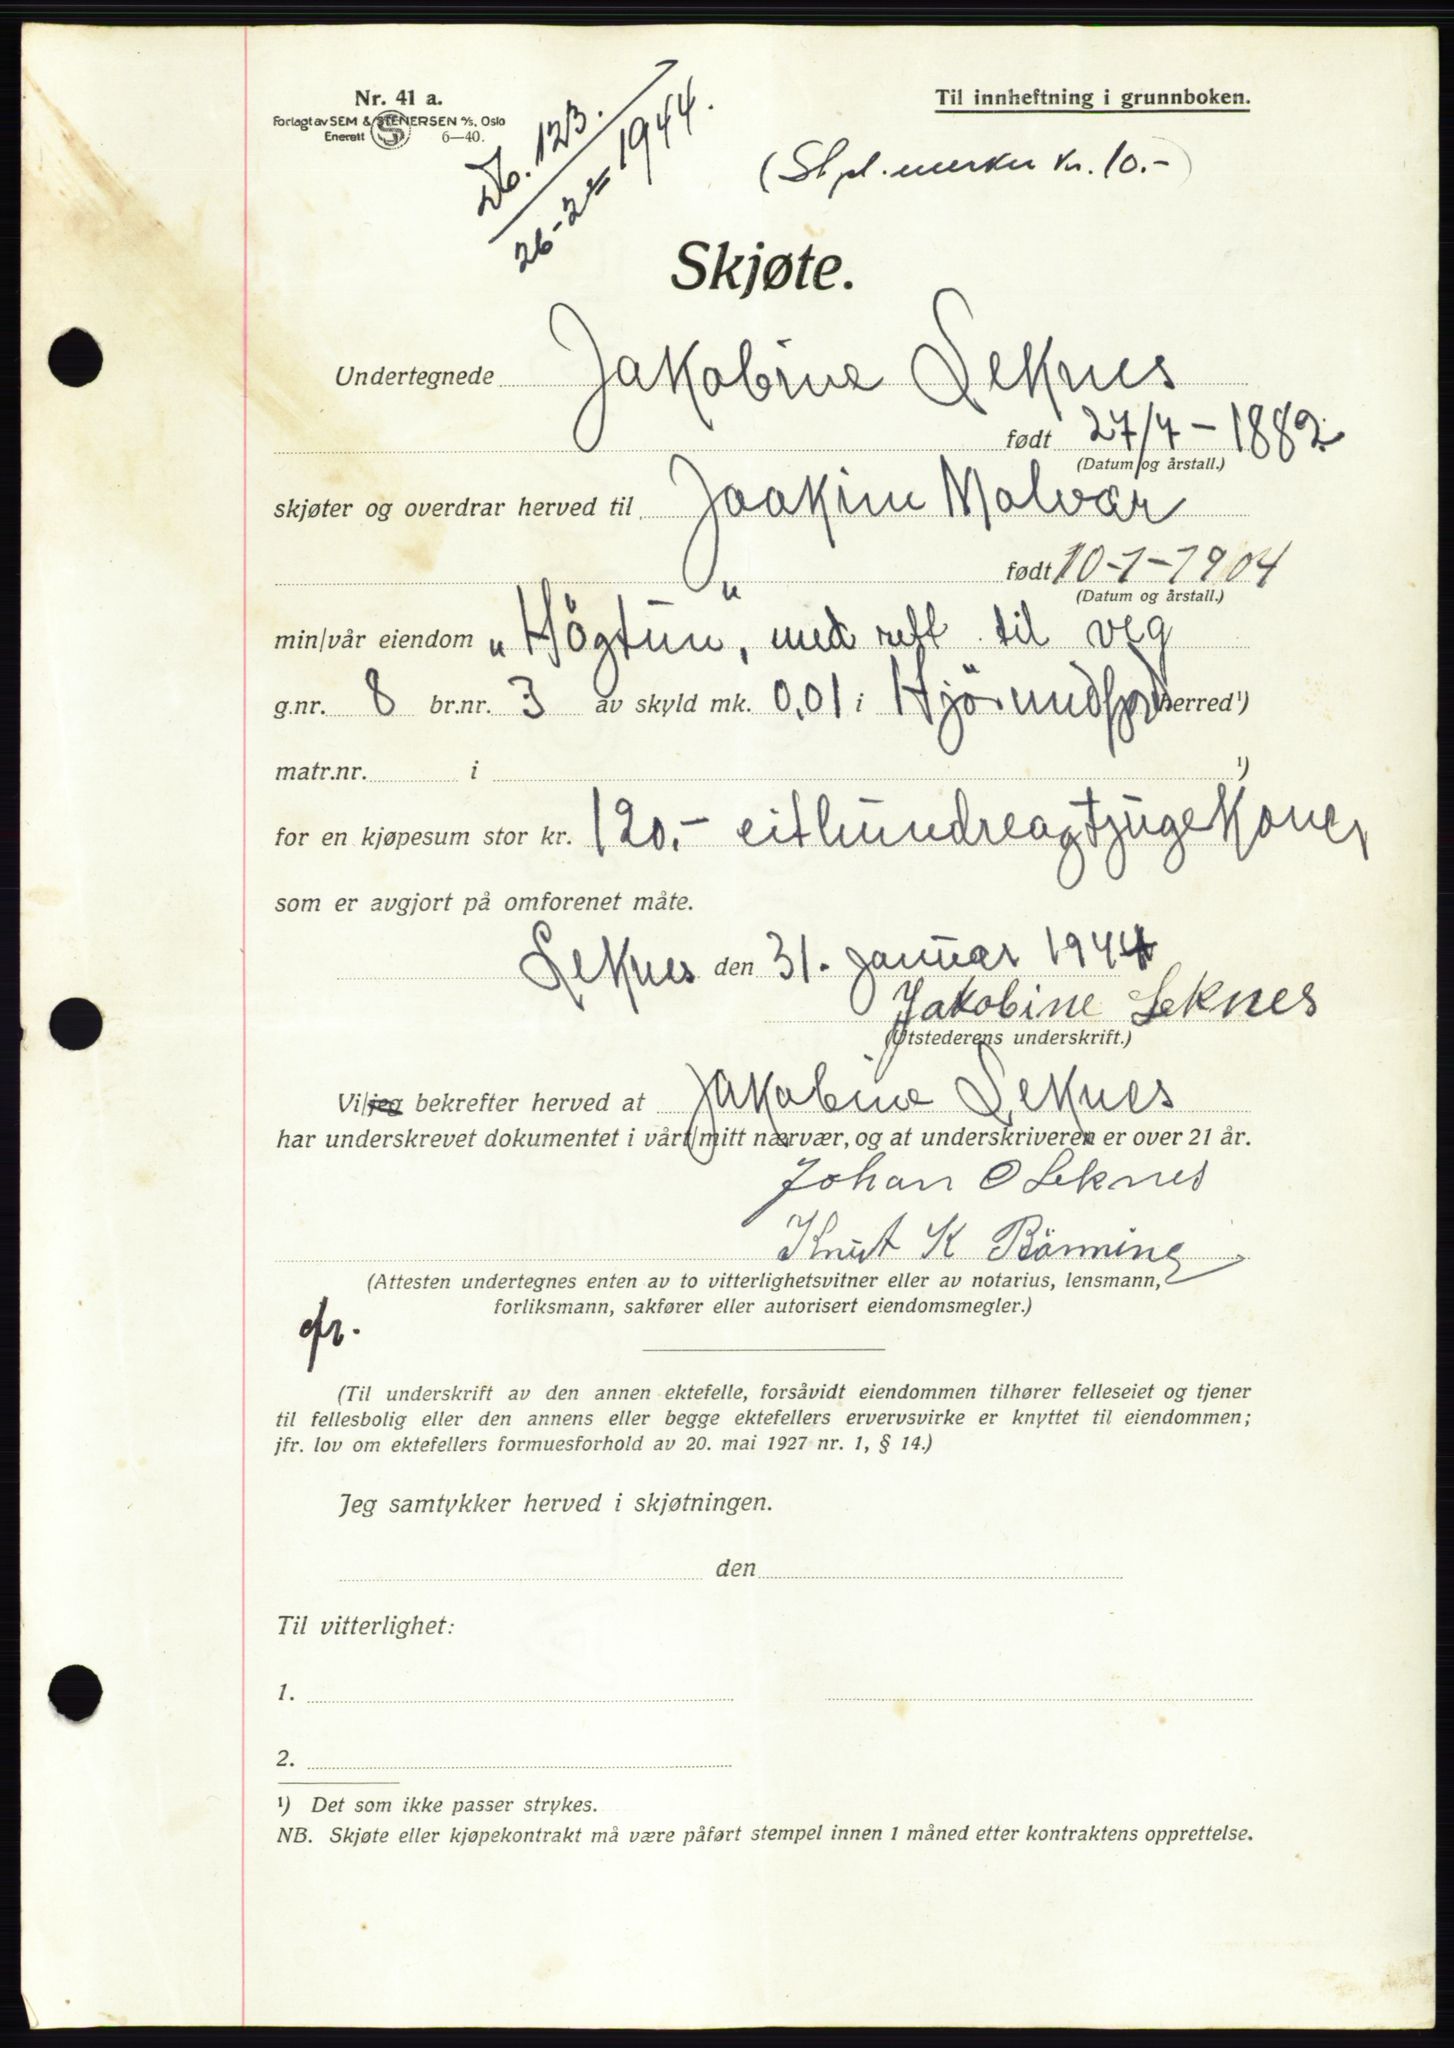 Nr. 41 a.
Forlagt av SEM & STENERSEN A/S, Oslo
Enerett S 6—40.
Til innheftning i grunnboken.
Db. 123.
26-2 1944.
(Stpl.merker kr. 10.-)
Skjøte.
Undertegnede Jakobine Leknes
født 27/7 - 1882
(Datum og årstall.)
skjøter og overdrar herved til Joakim Molvær
født 10-1-1904
(Datum og årstall.)
min/vår eiendom „Högtun“, med rett til veg
g.nr. 8 br.nr. 3 av skyld mk. 0,01 i Hjörundfjord herred¹)
matr.nr. i ¹)
for en kjøpesum stor kr. 120.- eithundreogtjuge kroner
som er avgjort på omforenet måte.
Leknes den 31. januar 1944
Jakobine Leknes
(Utstederens underskrift.)
Vi/jeg bekrefter herved at Jakobine Leknes
har underskrevet dokumentet i vårt/mitt nærvær, og at underskriveren er over 21 år.
Johan O Leknes
Knut K Rönning
(Attesten undertegnes enten av to vitterlighetsvitner eller av notarius, lensmann,
forliksmann, sakfører eller autorisert eiendomsmegler.)
(Til underskrift av den annen ektefelle, forsåvidt eiendommen tilhører felleseiet og tjener
til fellesbolig eller den annens eller begge ektefellers ervervsvirke er knyttet til eiendommen;
jfr. lov om ektefellers formuesforhold av 20. mai 1927 nr. 1, § 14.)
Jeg samtykker herved i skjøtningen.
den
Til vitterlighet:
1.
2.
¹) Det som ikke passer strykes.
NB. Skjøte eller kjøpekontrakt må være påført stempel innen 1 måned etter kontraktens opprettelse.